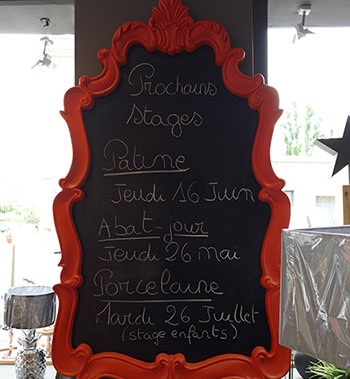 Prochains
Stages
Patine
Jeudi 16 Juin
Abat-jour
Jeudi 26 mai
Porcelaine
Mardi 26 Juillet
(stage enfants)